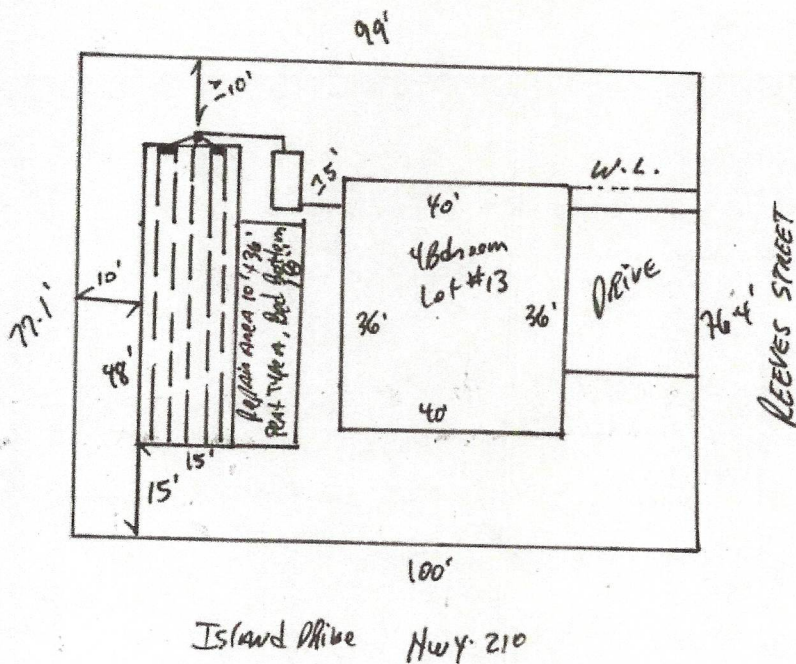 99'
≥10'
≥5'
W.L.
40'
4 Bedroom
Lot #13
36'
36'
DRIVE
76.4'
REEVES STREET
10'
77.1'
48'
Repair Area 10' x 36'
Peat Type A, Bed Bottom
15'
15'
40'
100'
Island Drive Hwy. 210